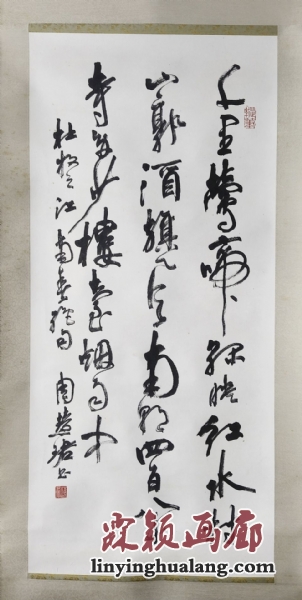 千里鶯啼绿映红水村
山郭酒旗风南朝四百八十
寺多少樓臺烟雨中
杜牧之江南春绝句 周慧珺书
霖颖画廊
linyinghualang.com